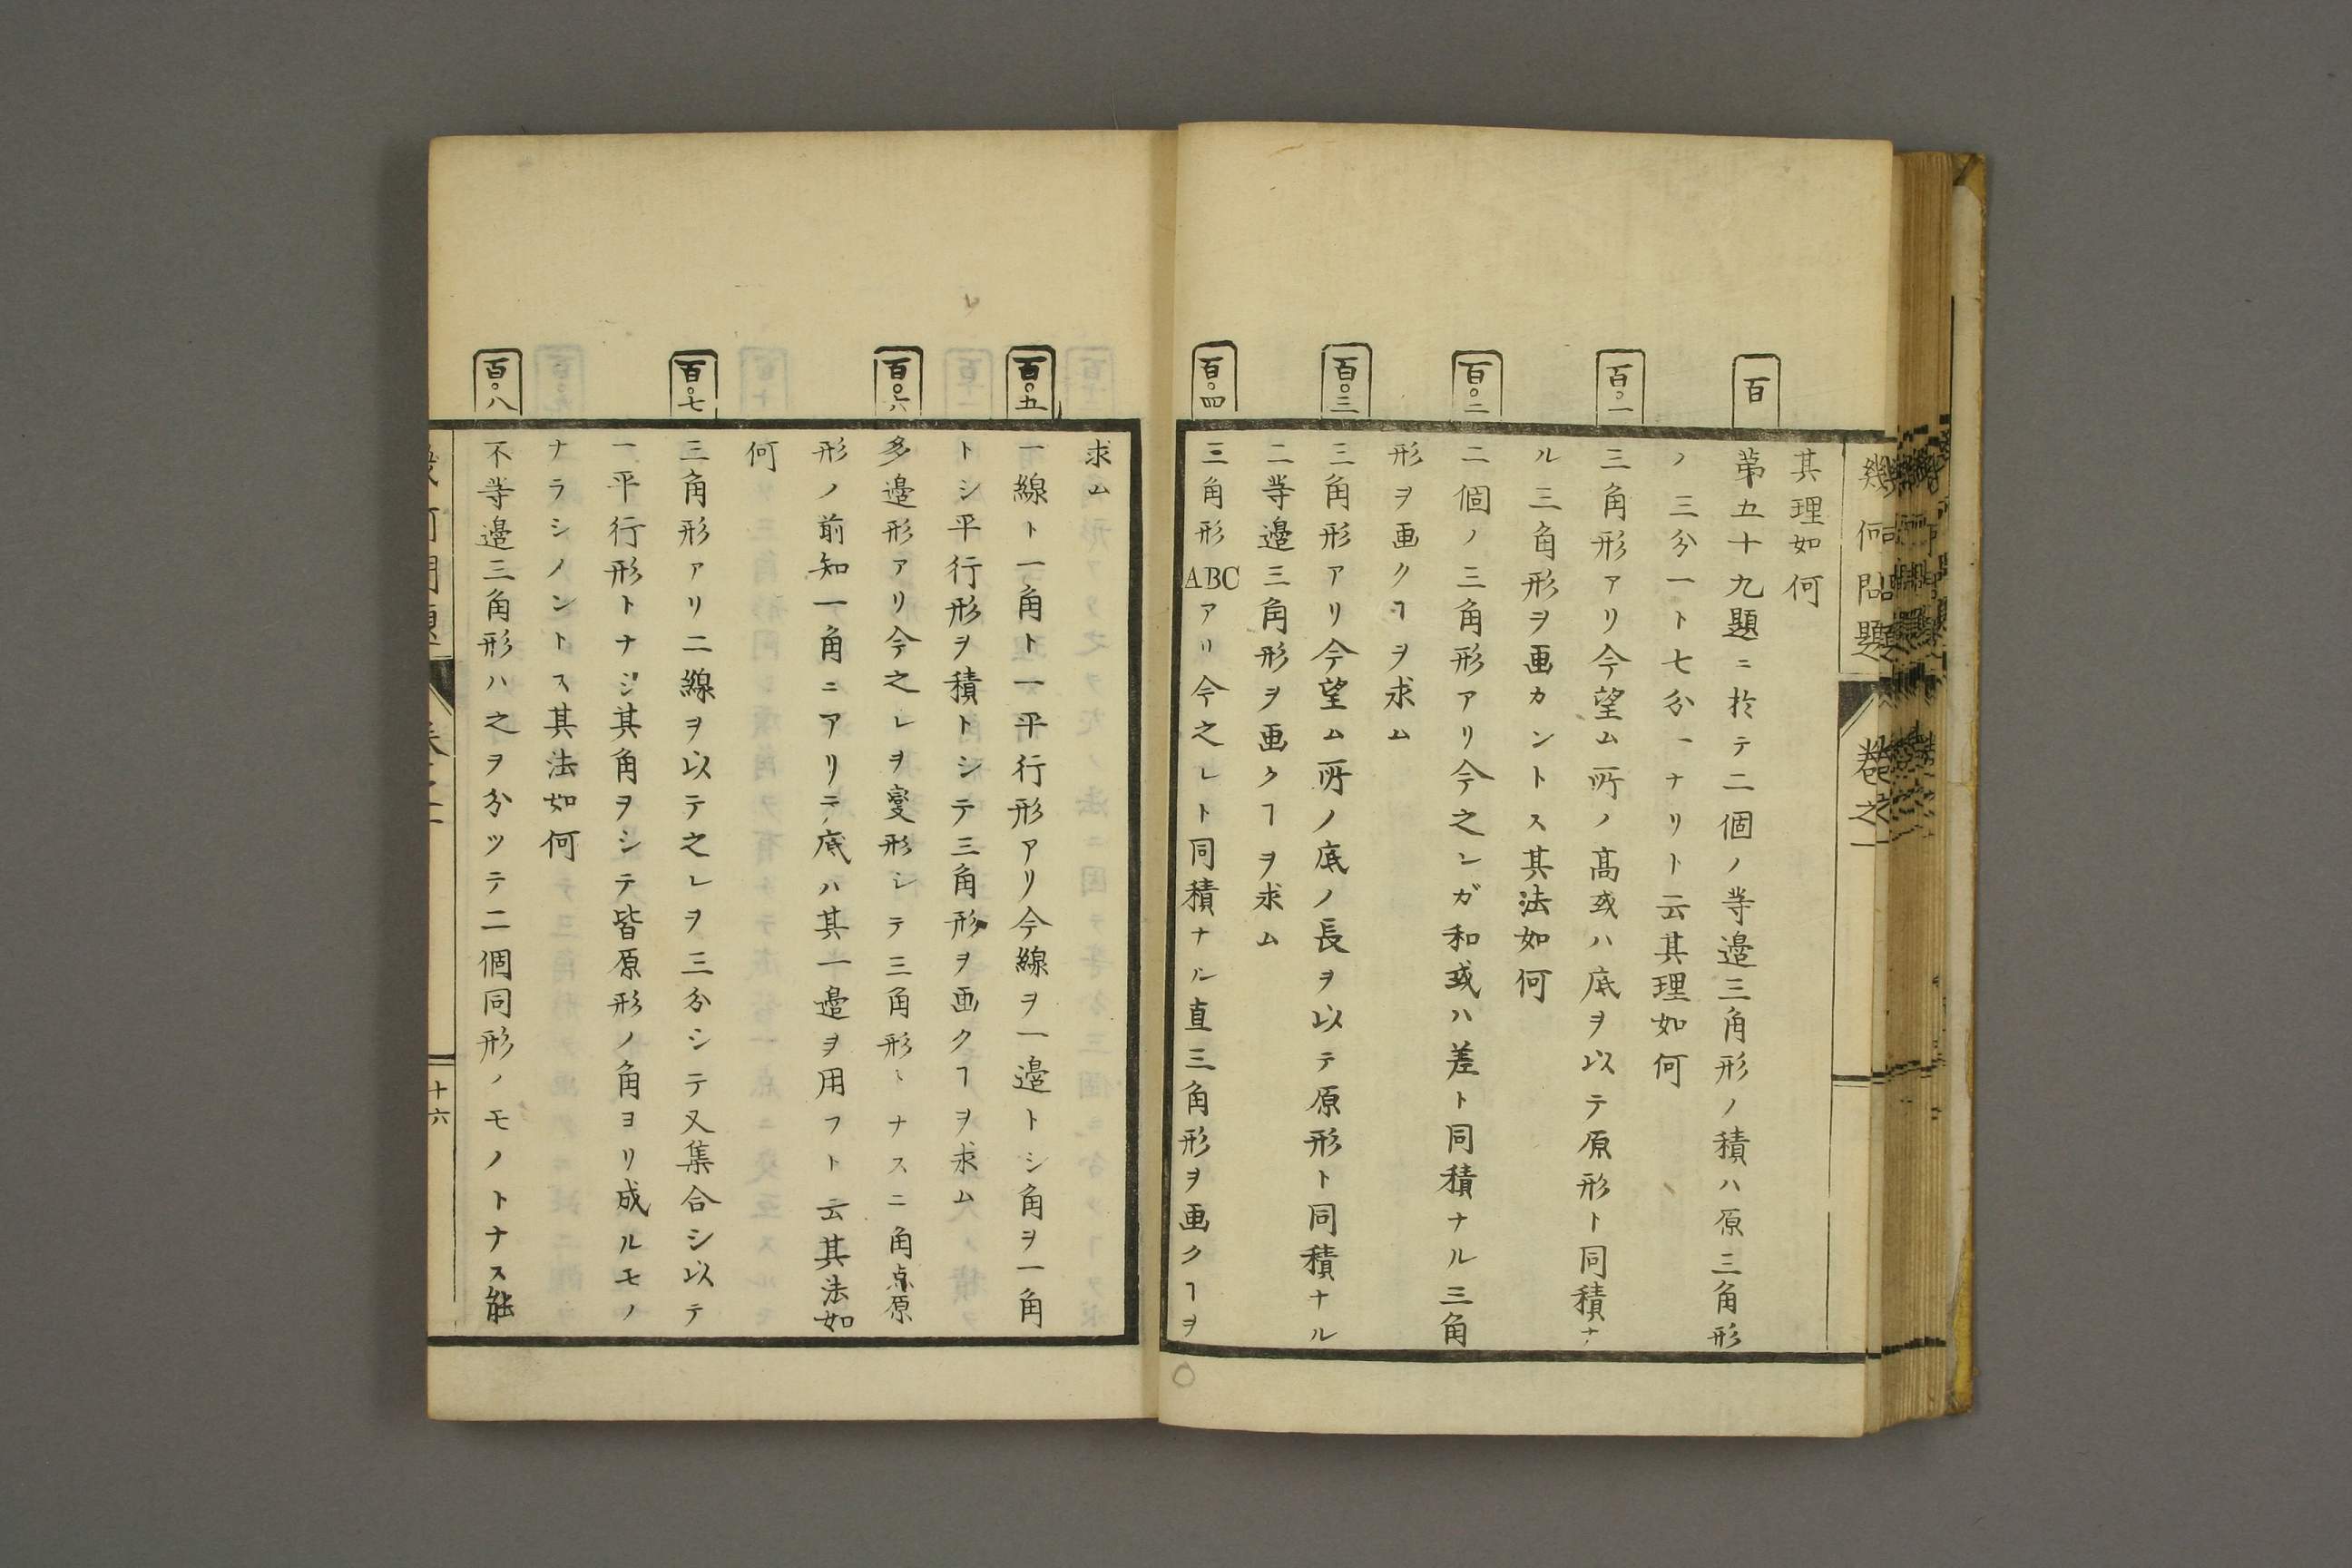 幾何問題
巻之一
其理如何
百
第五十九題ニ於テ二個ノ等邉三角形ノ積ハ原三角形
ノ三分一ト七分一ナリト云其理如何
百〇一
三角形アリ今望ム所ノ髙或ハ底ヲ以テ原形ト同積ナ
ル三角形ヲ画カントス其法如何
百〇二
二個ノ三角形アリ今之レガ和或ハ差ト同積ナル三角
形ヲ画クヿヲ求ム
百〇三
三角形アリ今望ム所ノ底ノ長ヲ以テ原形ト同積ナル
二等邉三角形ヲ画クヿヲ求ム
百〇四
三角形ABCアリ今之レト同積ナル直三角形ヲ画クヿヲ
求ム
百〇五
一線ト一角ト一平行形アリ今線ヲ一邉トシ角ヲ一角
トシ平行形ヲ積トシテ三角形ヲ画クヿヲ求ム
百〇六
多邉形アリ今之レヲ変形シテ三角形トナスニ角点原
形ノ前知一角ニアリテ底ハ其一邉ヲ用フト云其法如
何
百〇七
三角形アリ二線ヲ以テ之レヲ三分シテ又集合シ以テ
一平行形トナシ其角ヲシテ皆原形ノ角ヨリ成ルモノ
ナラシメントス其法如何
百〇八
不等邉三角形ハ之ヲ分ツテ二個同形ノモノトナス能
十六